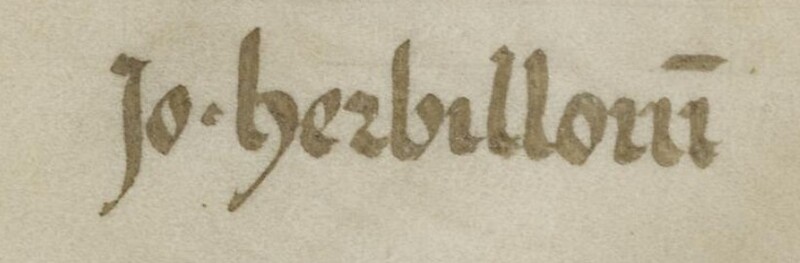 Jo. herbillom̄